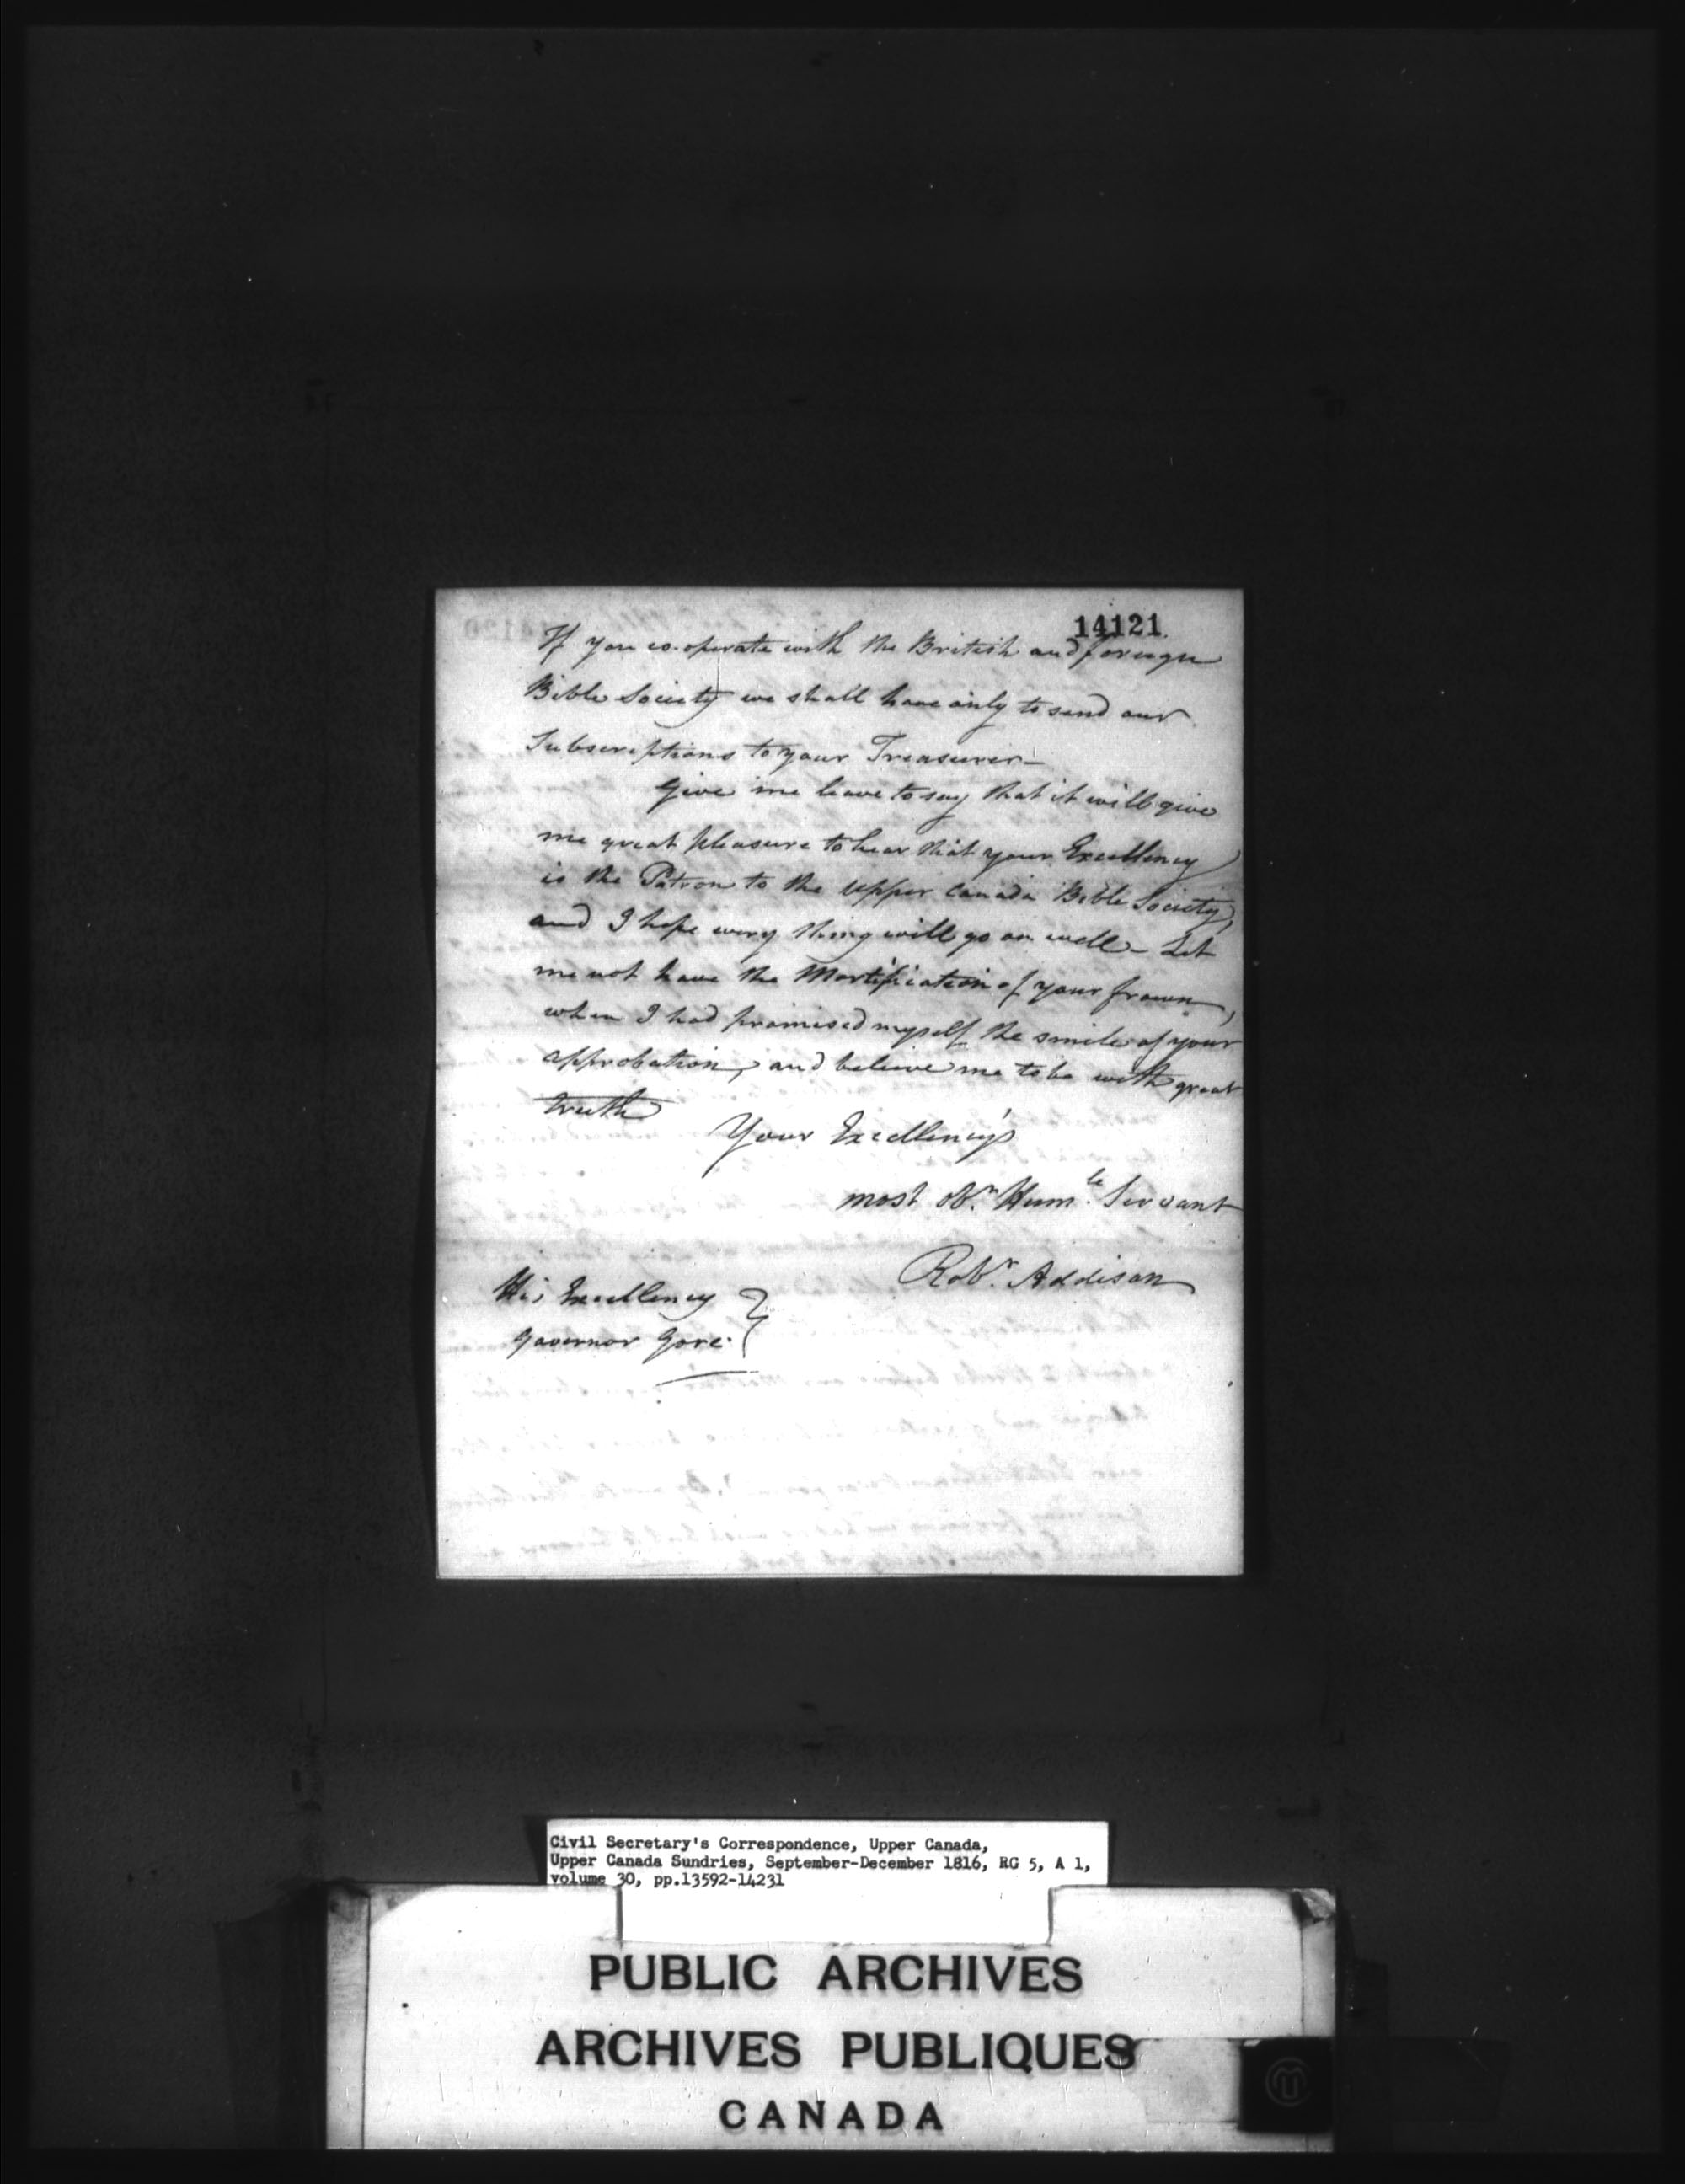 14121
If you co-operate with the British and foreign
Bible Society we shall have only to send our
Subscriptions to your Treasurer—
Give me leave to say that it will give
me great pleasure to hear that your Excellency
is the Patron to the Upper Canada Bible Society,
and I hope every thing will go on well – Let
me not have the Mortification of your frown,
when I had promised myself the smile of your
approbation, and believe me to be with great
truth
Your Excellency's
most obt. Humle. Servant
Robt. Addison
His Excellency
Governor Gore.
Civil Secretary's Correspondence, Upper Canada,
Upper Canada Sundries, September-December 1816, RG 5, A 1,
volume 30, pp.13592-14231
PUBLIC ARCHIVES
ARCHIVES PUBLIQUES
CANADA